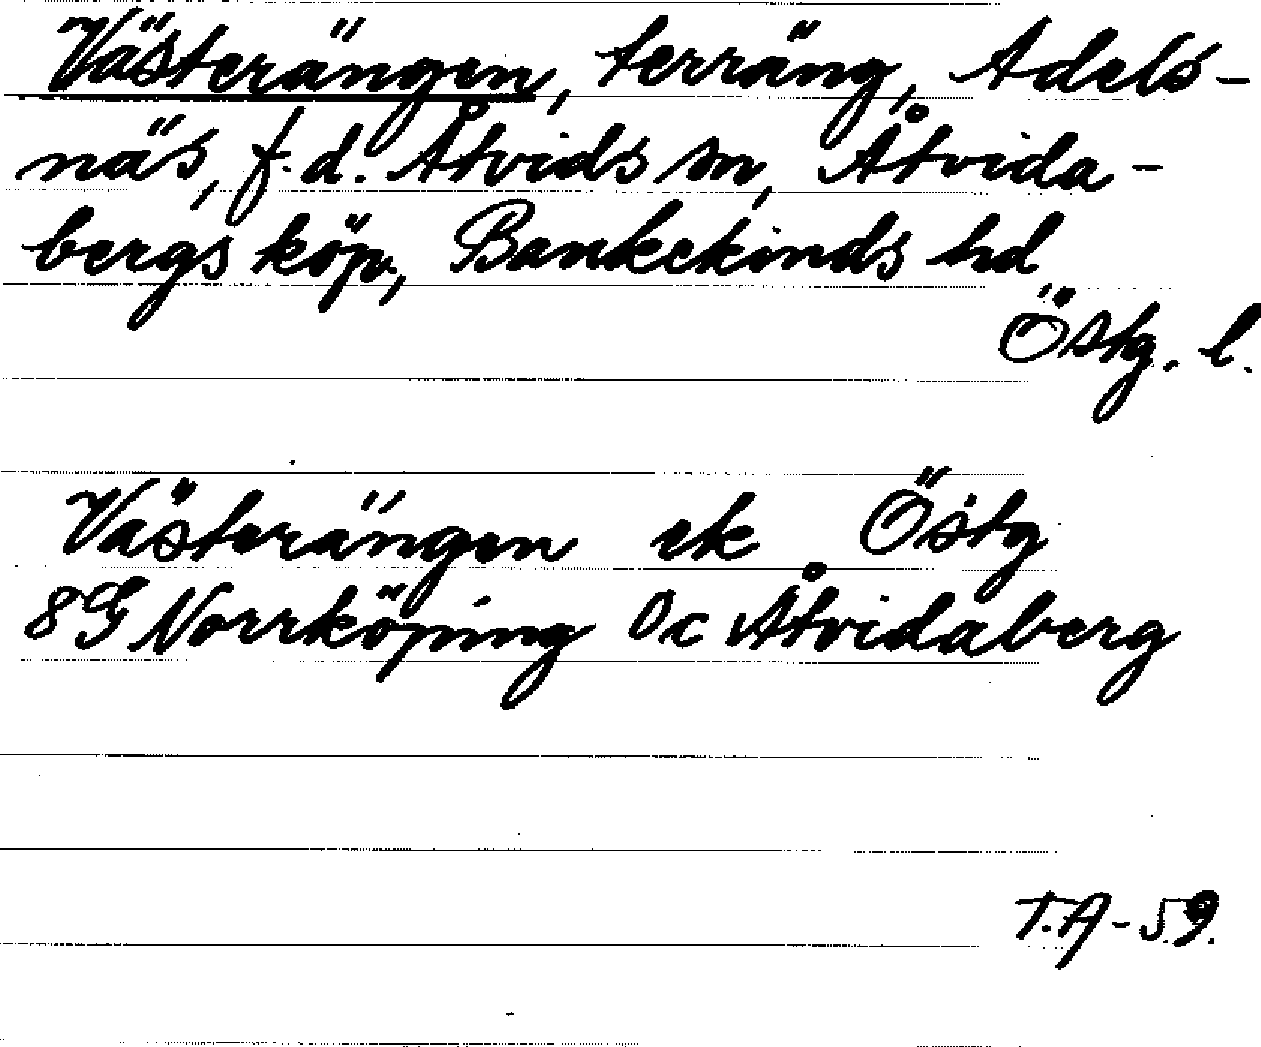 Västerängen, terräng, Adels-
näs, f.d. Åtvids sn, Åtvida-
bergs köp., Bankekinds hd
Östg. l.
Västerängen ek Östg
8G Norrköping 0c Åtvidaberg
T.A-59.